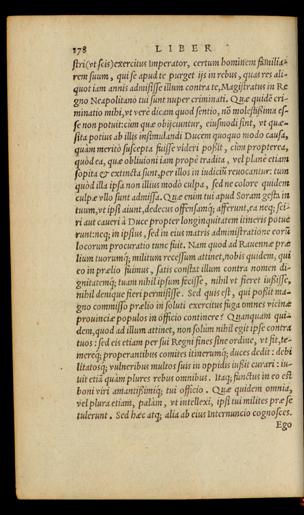 178 LIBER
stri (vt scis) exercitus Imperator, certum hominem familia-
rem suum, qui se apud te purget ijs in rebus, quas res ali-
quot iam annis admisisse illum contra te, Magistratus in Re
gno Neapolitano tui sunt nuper criminati. Quæ quidē cri-
minatio mihi, vt vere dicam quod sentio, nō molestissima es-
se non potuit: cùm quæ obijcuntur, eiusmodi sint, vt quæ-
sita potius ab illis insimulandi Ducem quoquo modo causa,
quàm meritò suscepta fuisse videri possit, cùm propterea,
quòd ea, quæ obliuioni iam propè tradita, vel planè etiam
sopita & extincta sunt, per illos in iudiciū reuocantur: tum
quòd illa ipsa non illius modò culpa, sed ne colore quidem
culpæ vllo sunt admissa. Quæ enim tui apud Soram gesta in
tuum, vt ipsi aiunt, dedecus offensamq́; afferunt, ea neq; sci-
ri aut caueri à Duce propter longinquitatem itineris potue
runt: neq; in ipsius, sed in eius matris administratione eorū
locorum procuratio tunc fuit. Nam quod ad Rauennæ præ
lium tuorumq́; militum recessum attinet, nobis quidem, qui
eo in prælio fuimus, satis constat illum contra nomen di-
gnitatemq́; tuam nihil ipsum fecisse, nihil vt fieret iussisse,
nihil denique fieri permisisse. Sed quis est, qui possit ma-
gno commisso prælio in soluti exercitus fuga omnes vicinæ
prouinciæ populos in officio continere? Quanquam qui-
dem, quod ad illum attinet, non solùm nihil egit ipse contra
tuos: sed eis etiam per sui Regni fines sine ordine, vt fit, te-
mereq́; properantibus comites itinerumq́; duces dedit: debi
litatosq́; vulneribus multos suis in oppidis iussit curari: iu-
uit etiā quàm plures rebus omnibus. Itaq; functus in eo est
boni viri amantissimiq́; tui officio. Quæ quidem omnia,
vel plura etiam, palàm, vt intellexi, ipsi tui milites præ se
tulerunt. Sed hæc atq; alia ab eius Internuncio cognosces.
Ego